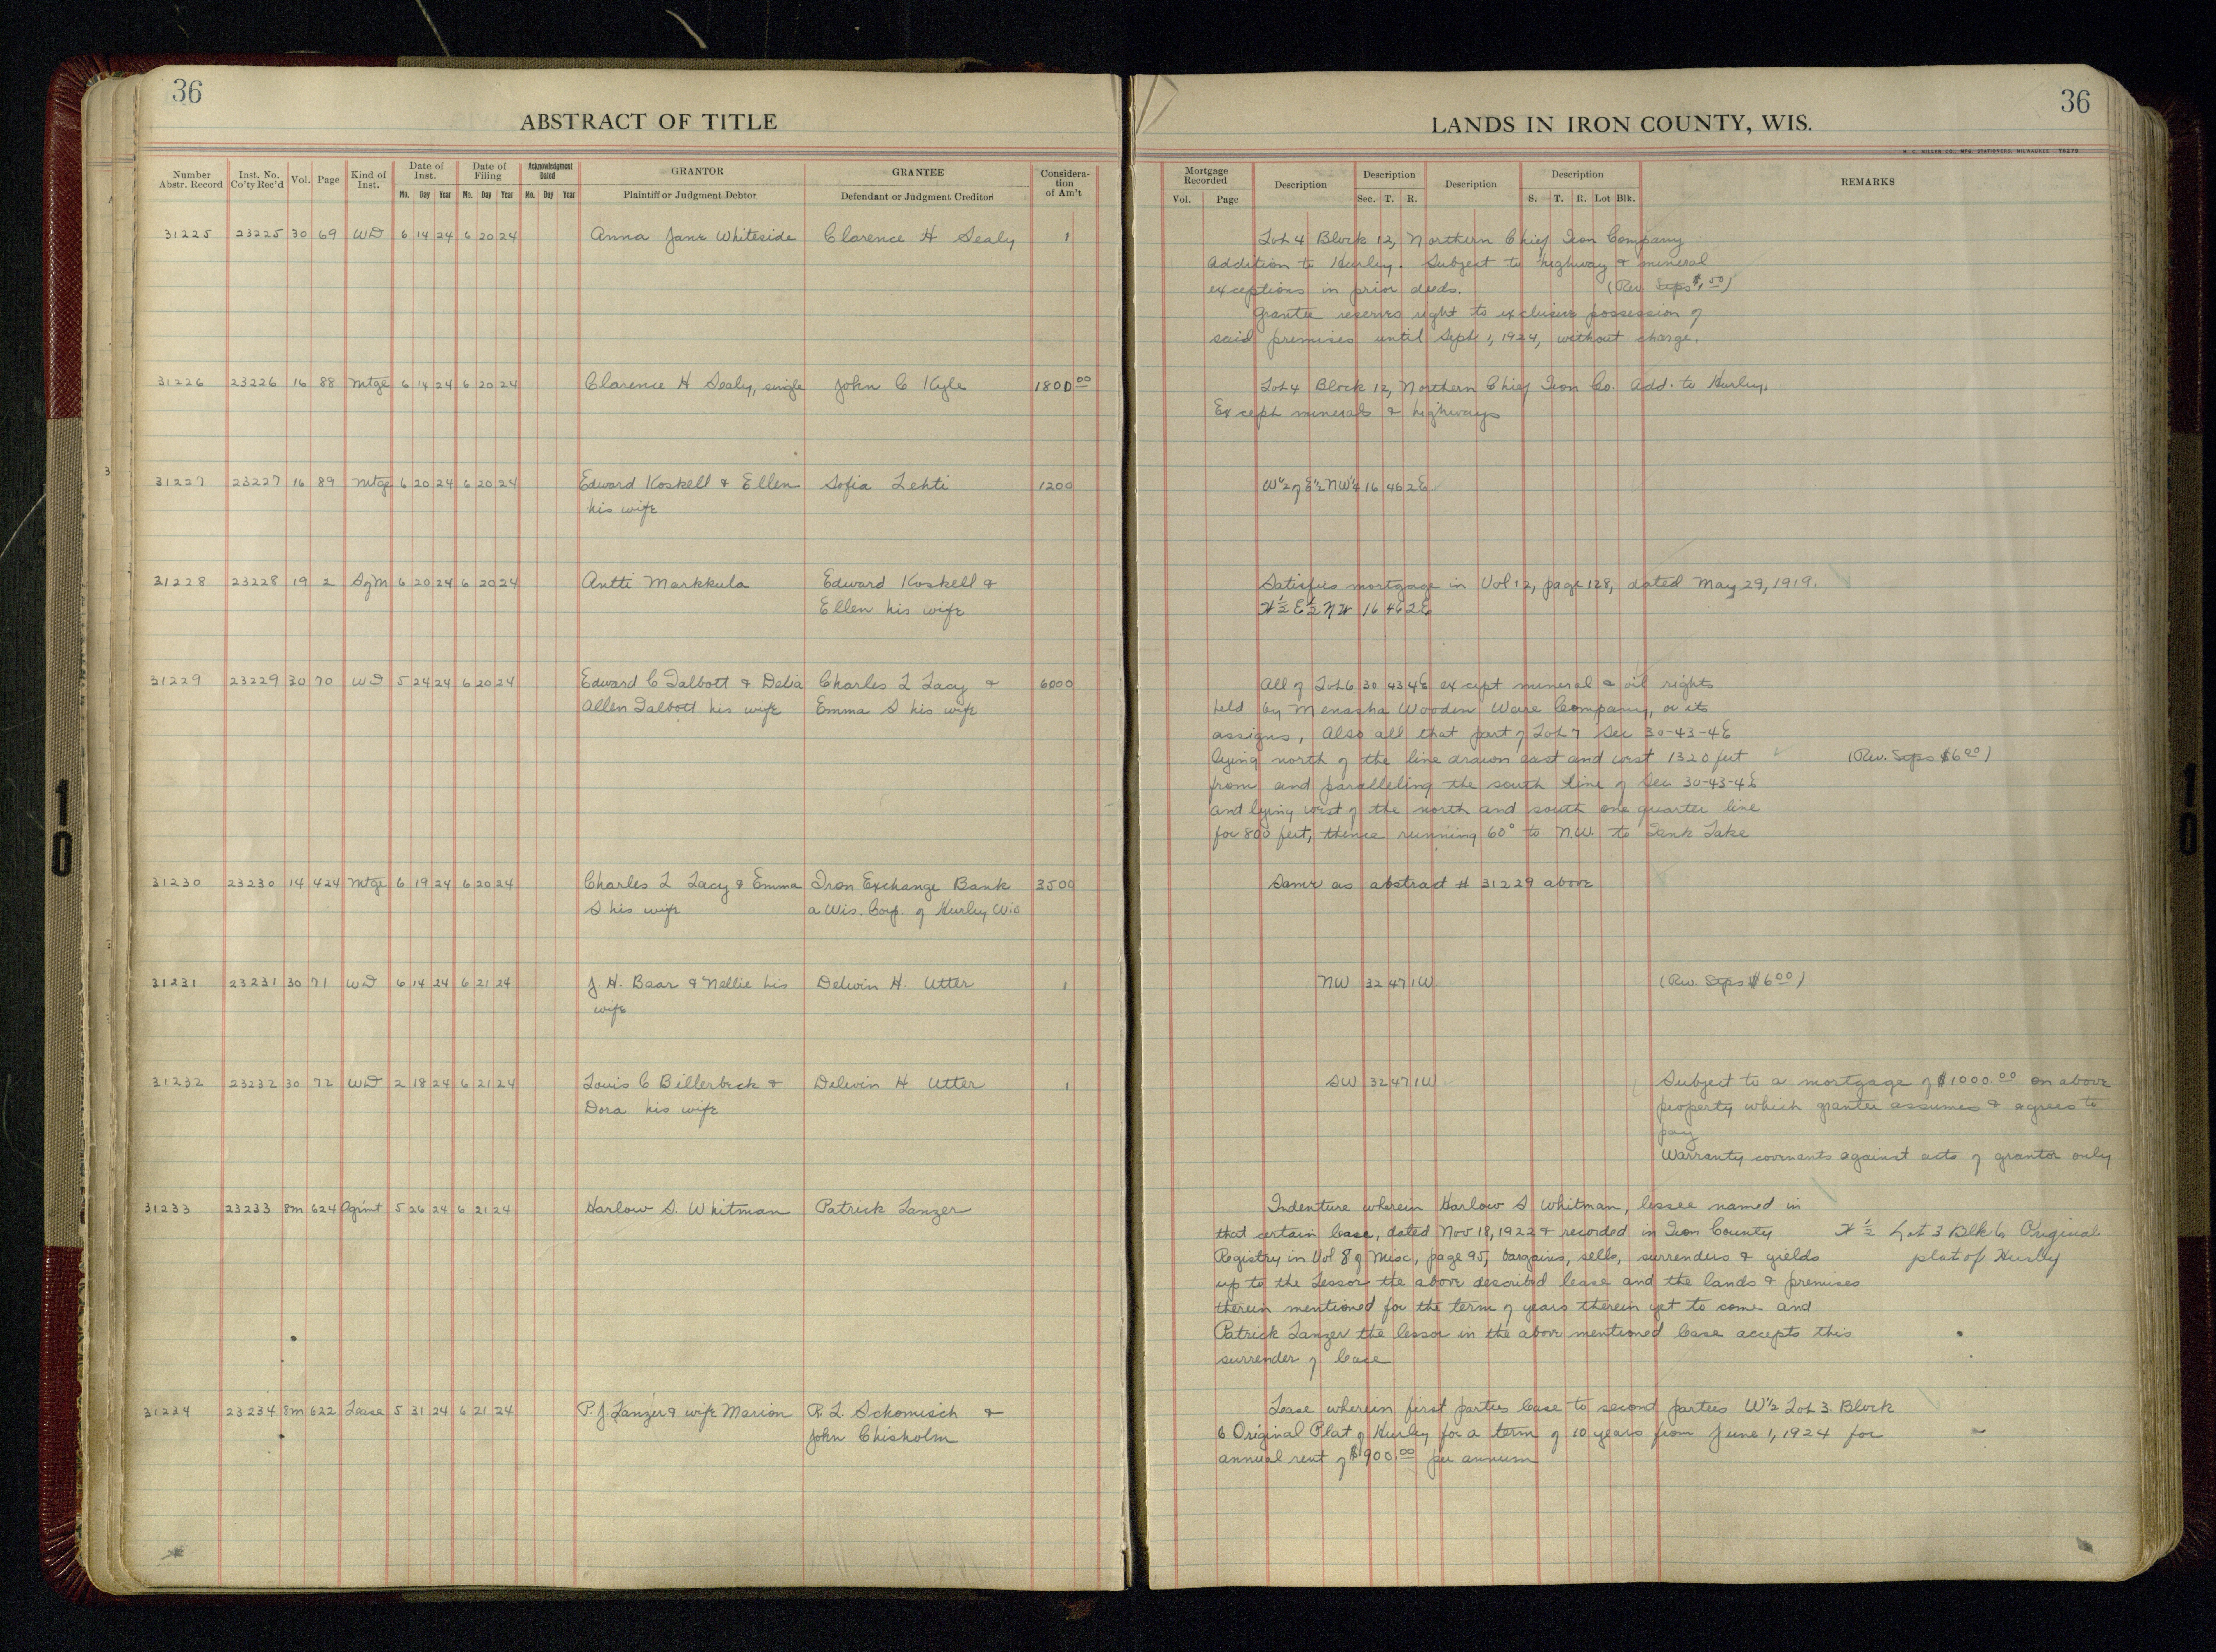 36
ABSTRACT OF TITLE
Number Abstr. Record
Inst. No. Co'ty Rec'd
Vol.
Page
Kind of Inst.
Date of Inst.
Mo. Day Year
Date of Filing
Mo. Day Year
Acknowledgment Dated
Mo. Day Year
GRANTOR
Plaintiff or Judgment Debtor
GRANTEE
Defendant or Judgment Creditor
Considera-tion of Am't
31225 23225 30 69 WD 6 14 24 6 20 24 Anna Jane Whiteside Clarence H Sealy 1
31226 23226 16 88 Mtge 6 14 24 6 20 24 Clarence H Sealy, single John C Kyle 1800 00
31227 23227 16 89 Mtge 6 20 24 6 20 24 Edward Koskell & Ellen Sofia Lehti 1200
his wife
31228 23228 19 2 SofM 6 20 24 6 20 24 Antti Markkula Edward Koskell &
Ellen his wife
31229 23229 30 70 WD 5 24 24 6 20 24 Edward C Talbott & Delia Charles L Lacy & 6000
Allen Talbott his wife Emma S his wife
31230 23230 14 424 Mtge 6 19 24 6 20 24 Charles L Lacy & Emma Iron Exchange Bank 3500
S his wife a Wis. Corp. of Hurley Wis
31231 23231 30 71 WD 6 14 24 6 21 24 J. H. Baar & Nellie his Delwin H. Utter 1
wife
31232 23232 30 72 WD 2 18 24 6 21 24 Louis C Billerbeck & Delwin H Utter 1
Dora his wife
31233 23233 8m 624 Agrmt 5 26 24 6 21 24 Harlow S. Whitman Patrick Lanzer
31234 23234 8m 622 Lease 5 31 24 6 21 24 P. J. Lanzer & wife Marion R. L. Schomisch &
John Chisholm
36
LANDS IN IRON COUNTY, WIS.
H. C. MILLER CO., MFG. STATIONERS, MILWAUKEE
Mortgage Recorded
Vol. Page
Description
Description
Sec. T. R.
Description
Description
S. T. R. Lot Blk.
REMARKS
Lot 4 Block 12, Northern Chief Iron Company
Addition to Hurley. Subject to highway & mineral
exceptions in prior deeds. (Rev Stps $1.50)
Grantee reserves right to exclusive possession of
said premises until Sept 1, 1924, without charge.
Lot 4 Block 12, Northern Chief Iron Co. Add. to Hurley.
Except minerals & highways
W½ of E½ NW¼ 16 46 2E
Satisfies mortgage in Vol 12, page 128, dated May 29, 1919.
W½ E½ NW 16 46 2E
All of Lot 6 30 43 4E except mineral & oil rights
held by Menasha Wooden Ware Company, or its
assigns, Also all that part of Lot 7 Sec 30-43-4E
lying north of the line drawn east and west 1320 feet (Rev. Stps $6 00)
from and paralleling the south line of Sec 30-43-4E
and lying west of the north and south one quarter line
for 800 feet, thence running 60° to N.W. to Tank Lake
Same as abstract # 31229 above
NW 32 47 1W (Rev. Stps $6 00)
SW 32 47 1W Subject to a mortgage of $1000.00 on above
property which grantee assumes & agrees to
pay
Warranty covenants against acts of grantor only
Indenture wherein Harlow S Whitman, lessee named in
that certain lease, dated Nov 18, 1922 & recorded in Iron County W ½ Lot 3 Blk 6 Original
Registry in Vol 8 of Misc, page 95, bargains, sells, surrenders & yields plat of Hurley
up to the Lessor the above described lease and the lands & premises
therein mentioned for the term of years therein yet to come and
Patrick Lanzer the lessor in the above mentioned lease accepts this
surrender of lease
Lease wherein first parties lease to second parties W½ Lot 3 Block
6 Original Plat of Hurley for a term of 10 years from June 1, 1924 for
annual rent of $900.00 per annum
10
10